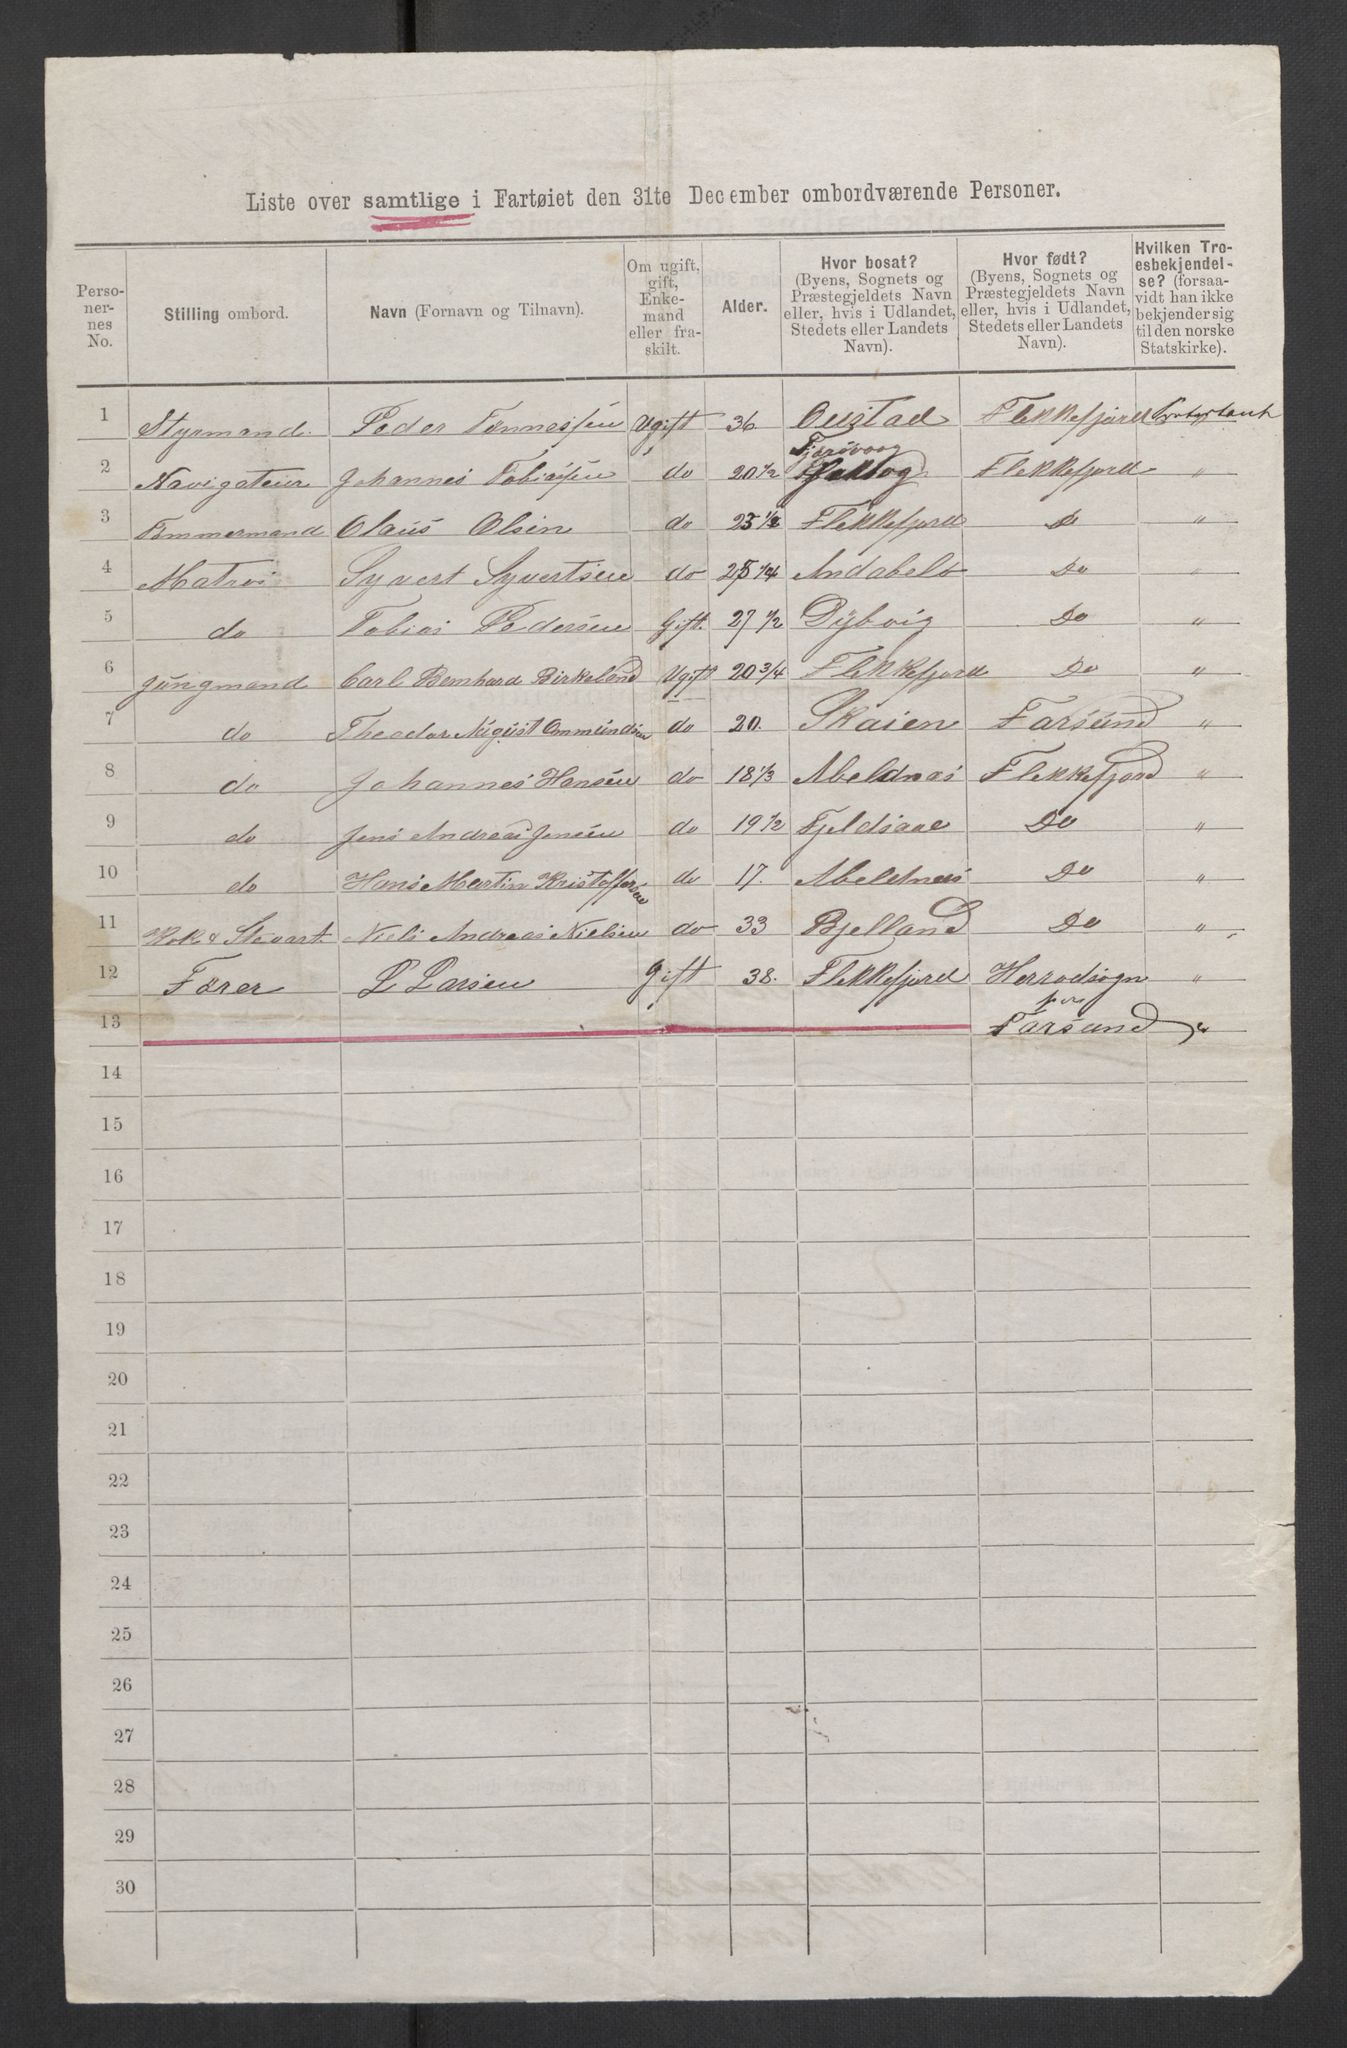 Liste over samtlige i Fartøiet den 31te December ombordværende Personer.
Perso-
ner-
nes
No.
Stilling ombord.
Navn (Fornavn og Tilnavn).
Om ugift,
gift,
Enke-
mand
eller fra-
skilt.
Alder.
Hvor bosat?
(Byens, Sognets og
Præstegjeldets Navn
eller, hvis i Udlandet,
Stedets eller Landets
Navn).
Hvor født?
(Byens, Sognets og
Præstegjeldets Navn
eller, hvis i Udlandet,
Stedets eller Landets
Navn).
Hvilken Tro-
esbekjendel-
se? (forsaa-
vidt han ikke
bekjender sig
til den norske
Statskirke).
1 Styrmand. Peder Tønnessen Ugift 36 Flekkefjord Protestant
2 Navigateur Johannes Tobiasen do 20 1/2 Flekkefjord "
3 Tømmermand Olaus Olsen do 25 1/2 Flekkefjord Do "
4 Matros Syvert Syvertsen do 25 1/4 Andabelø Do "
5 do Tobias Pedersen Gift. 27 1/2 Dybvig Do "
6 Jungmand Carl Bernhard Birkeland Ugift 20 3/4 Flekkefjord Do "
7 do Theodor August Ommundsen do 20. Skaien Farsund "
8 do Johannes Hansen do 18 1/3 Abeldnæs Flekkefjord "
9 do Jens Andreas Jensen do 19 1/2 Fjeldsaae Do "
10 do Hans Martin Kristoffersen do 17. Abeldnæs Do "
11 Kok & Stevart Niels Andreas Nielsen do 33 Bjelland Do "
12 Fører L Larsen Gift 38. Flekkefjord Herredsogn "
13 Farsund "
14
15
16
17
18
19
20
21
22
23
24
25
26
27
28
29
30